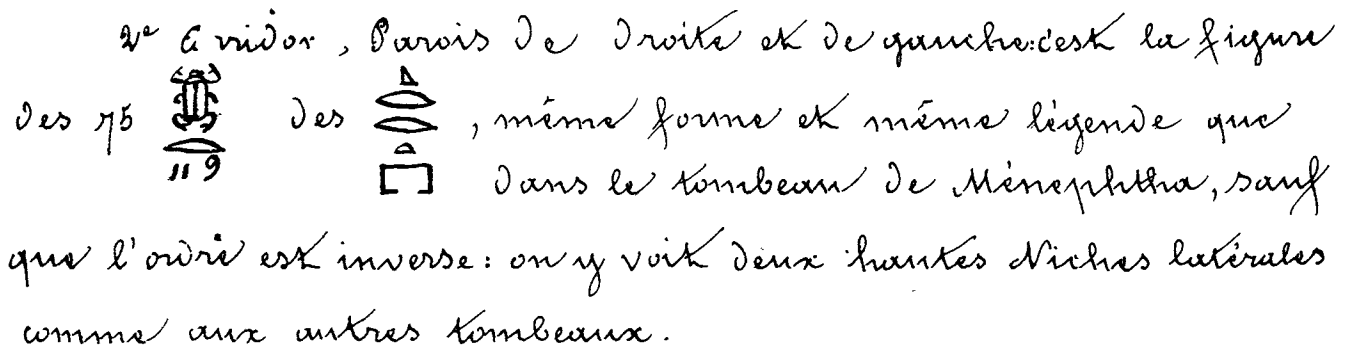 2e Corridor, Parois de droite et de gauche: c'est la figure
des 75 des , même forme et même légende que
dans le tombeau de Ménephtha, sauf
que l'ordre est inverse: on y voit deux hautes Niches latérales
comme aux autres tombeaux.